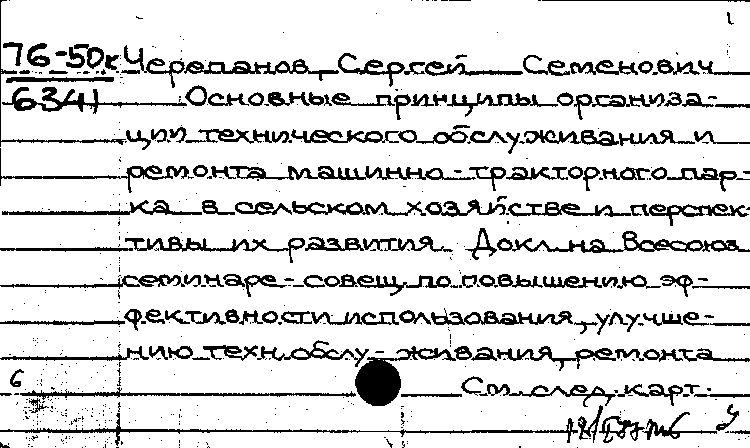 1
76-50к Черепанов, Сергей Семенович
6341 Основные принципы организа-
ции технического обслуживания и
ремонта машинно-тракторного пар-
ка в сельском хозяйстве и перспек-
тивы их развития. Докл. на Всесоюз.
семинаре-совещ. по повышению эф-
фективности использования, улучше-
нию техн. обслу-живания, ремонта
6
См. след. карт.